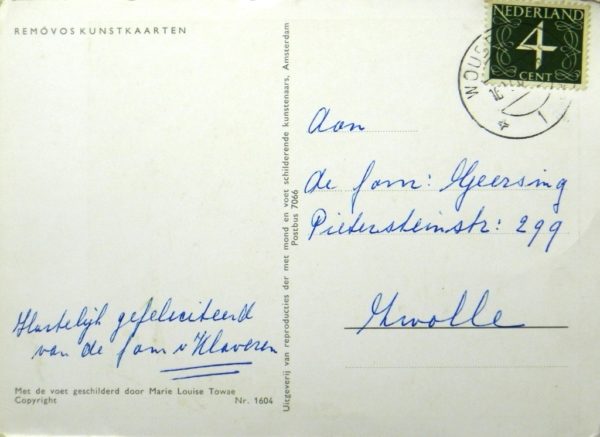 REMÓVOS KUNSTKAARTEN
Hartelijk gefeliciteerd
van de fam v Klaveren
Met de voet geschilderd door Marie Louise Towae
Copyright Nr. 1604
Uitgeverij van reproducties der met mond en voet schilderende kunstenaars, Amsterdam
Postbus 7066
NEDERLAND
4
CENT
Aan
de fam: Geersing
Pietersteinstr: 299
Zwolle